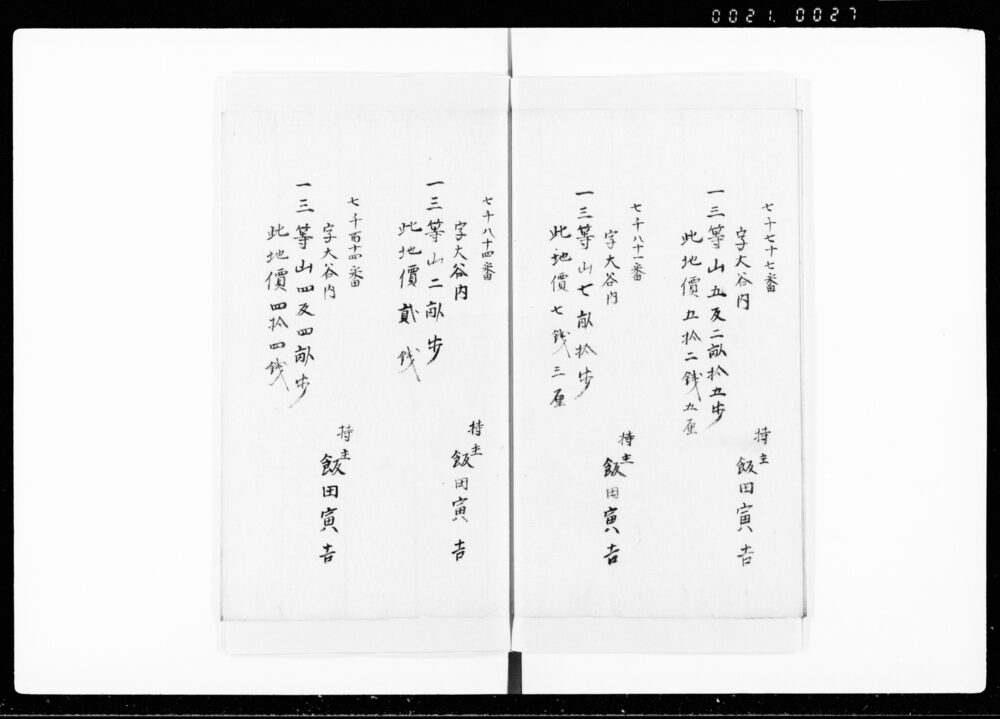 0021. 0027
七千七十七番
字大谷内
一三等山五反二畝拾五歩
此地價五拾二銭五厘
持主
飯田寅吉
七千八十一番
字大谷内
一三等山七畝拾歩
此地價七銭三厘
持主
飯田寅吉
七千八十四番
字大谷内
一三等山二畝歩
此地價貮銭
持主
飯田寅吉
七千百十四番
字大谷内
一三等山四反四畝歩
此地價四拾四銭
持主
飯田寅吉